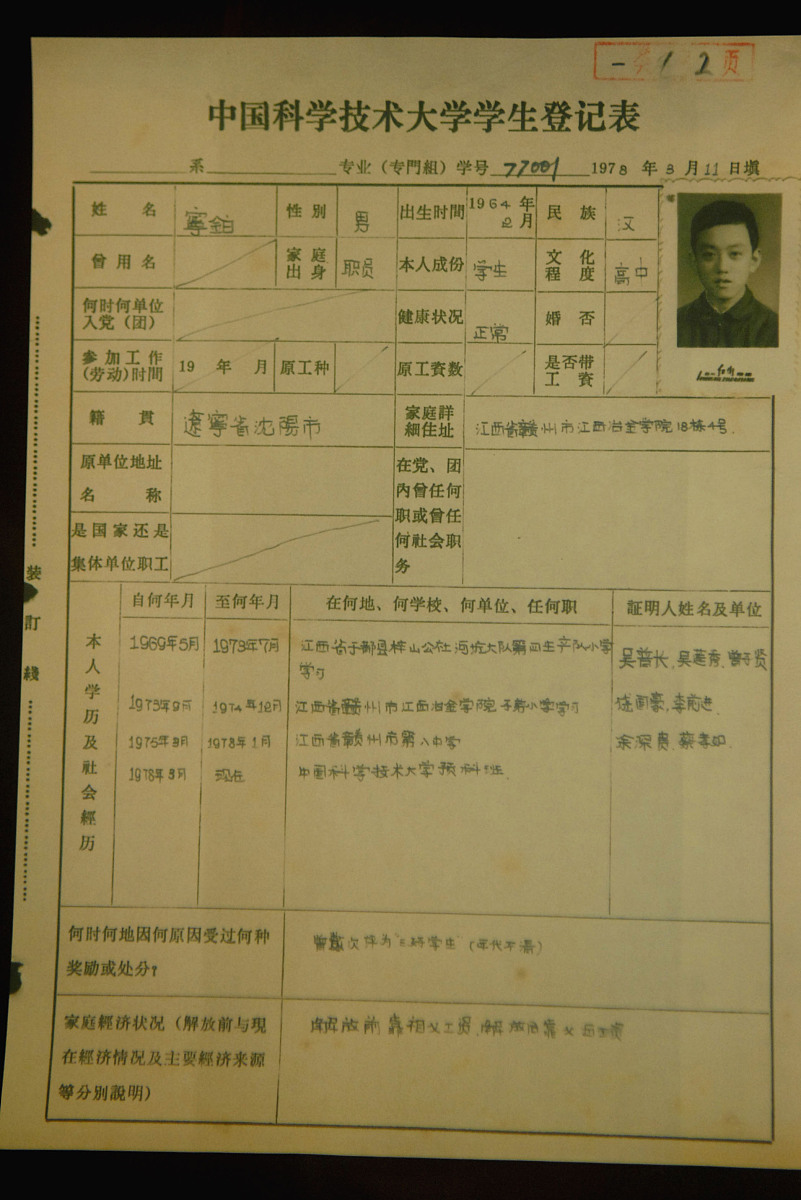 12页
中国科学技术大学学生登记表
系 专业（专門組）学号 77001 1978 年 3 月 11 日填
姓 名 寧鉑 性 别 男 出生时間 1964 年 2 月 民 族 汉
曾 用 名 家 庭 出 身 职员 本人成份 学生 文 化 程 度 高中
何时何单位
入党（团） 健康状况 正常 婚 否
参 加 工 作
(劳动)时間 19 年 月 原工种 原工資数 是否带
工 資
籍 貫 遼寧省沈陽市 家庭詳
細住址 江西省赣州市江西冶金学院18栋4号.
原单位地址
名 称
在党、团
内曾任何
职或曾任
何社会职
务
是国家还是
集体单位职工
装
訂
綫
本人学历及社会經历
自何年月 至何年月 在何地、何学校、何单位、任何职 証明人姓名及单位
1969年5月 1973年7月 江西省于都县梓山公社 大队第四生产队小学
学习
1973年9月 1974年12月 江西省赣州市江西冶金学院子弟小学学习
1975年3月 1978年1月 江西省赣州市第八中学
1978年3月 现在 中国科学技术大学预科班.
何时何地因何原因受过何种
奖励或处分？
曾 次评为"三好学生"（年代不清）
家庭經济状况（解放前与現
在經济情况及主要經济来源
等分別說明）
解放前靠祖父工资,解放后靠父母工资